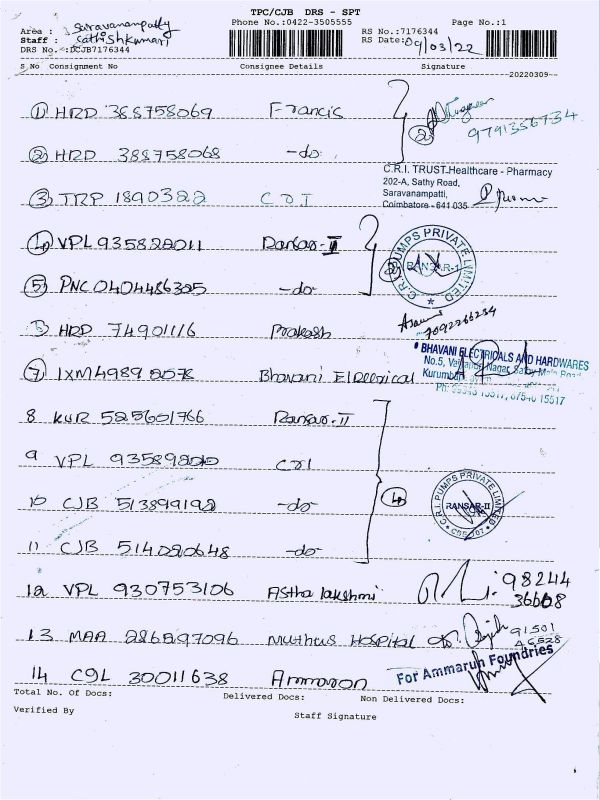 TPC/CJB DRS - SPT
Phone No.:0422-3505555
Page No.:1
Area : Saravanampatty
Staff : Sathishkumar
DRS No.:DCJB7176344
RS No.:7176344
RS Date: 09/03/22
S_No Consignment No Consignee Details Signature
20220309
1 HRD 388758069 Francis
2 9791356734
2 HRD 388758068 -do-
C.R.I. TRUST-Healthcare - Pharmacy
202-A, Sathy Road,
Saravanampatti,
Coimbatore - 641 035
3 TRP 1890322 C R I
4 VPL 935828011 Ransar-II
C.R.I. PUMPS PRIVATE LIMITED
RANSAR-1
5 PNC 0404486325 -do-
7092266234
HRD 74901116 Prakash
BHAVANI ELECTRICALS AND HARDWARES
7 IXM 4989 Bhavani Electrical
8 KUR 525601766 Ransar-II
9 VPL CRI
C.R.I. PUMPS PRIVATE LIMITED
RANSAR-II
10 CJB 513899192 -do- 4
11 CJB 514020648 -do-
12 VPL 930753106 Astha lakshmi 98244
13 MAA 286897096 Muthus Hospital 91501
For Ammarun Foundries
14 C9L 30011638 Ammaron
Total No. Of Docs: Delivered Docs: Non Delivered Docs:
Verified By
Staff Signature